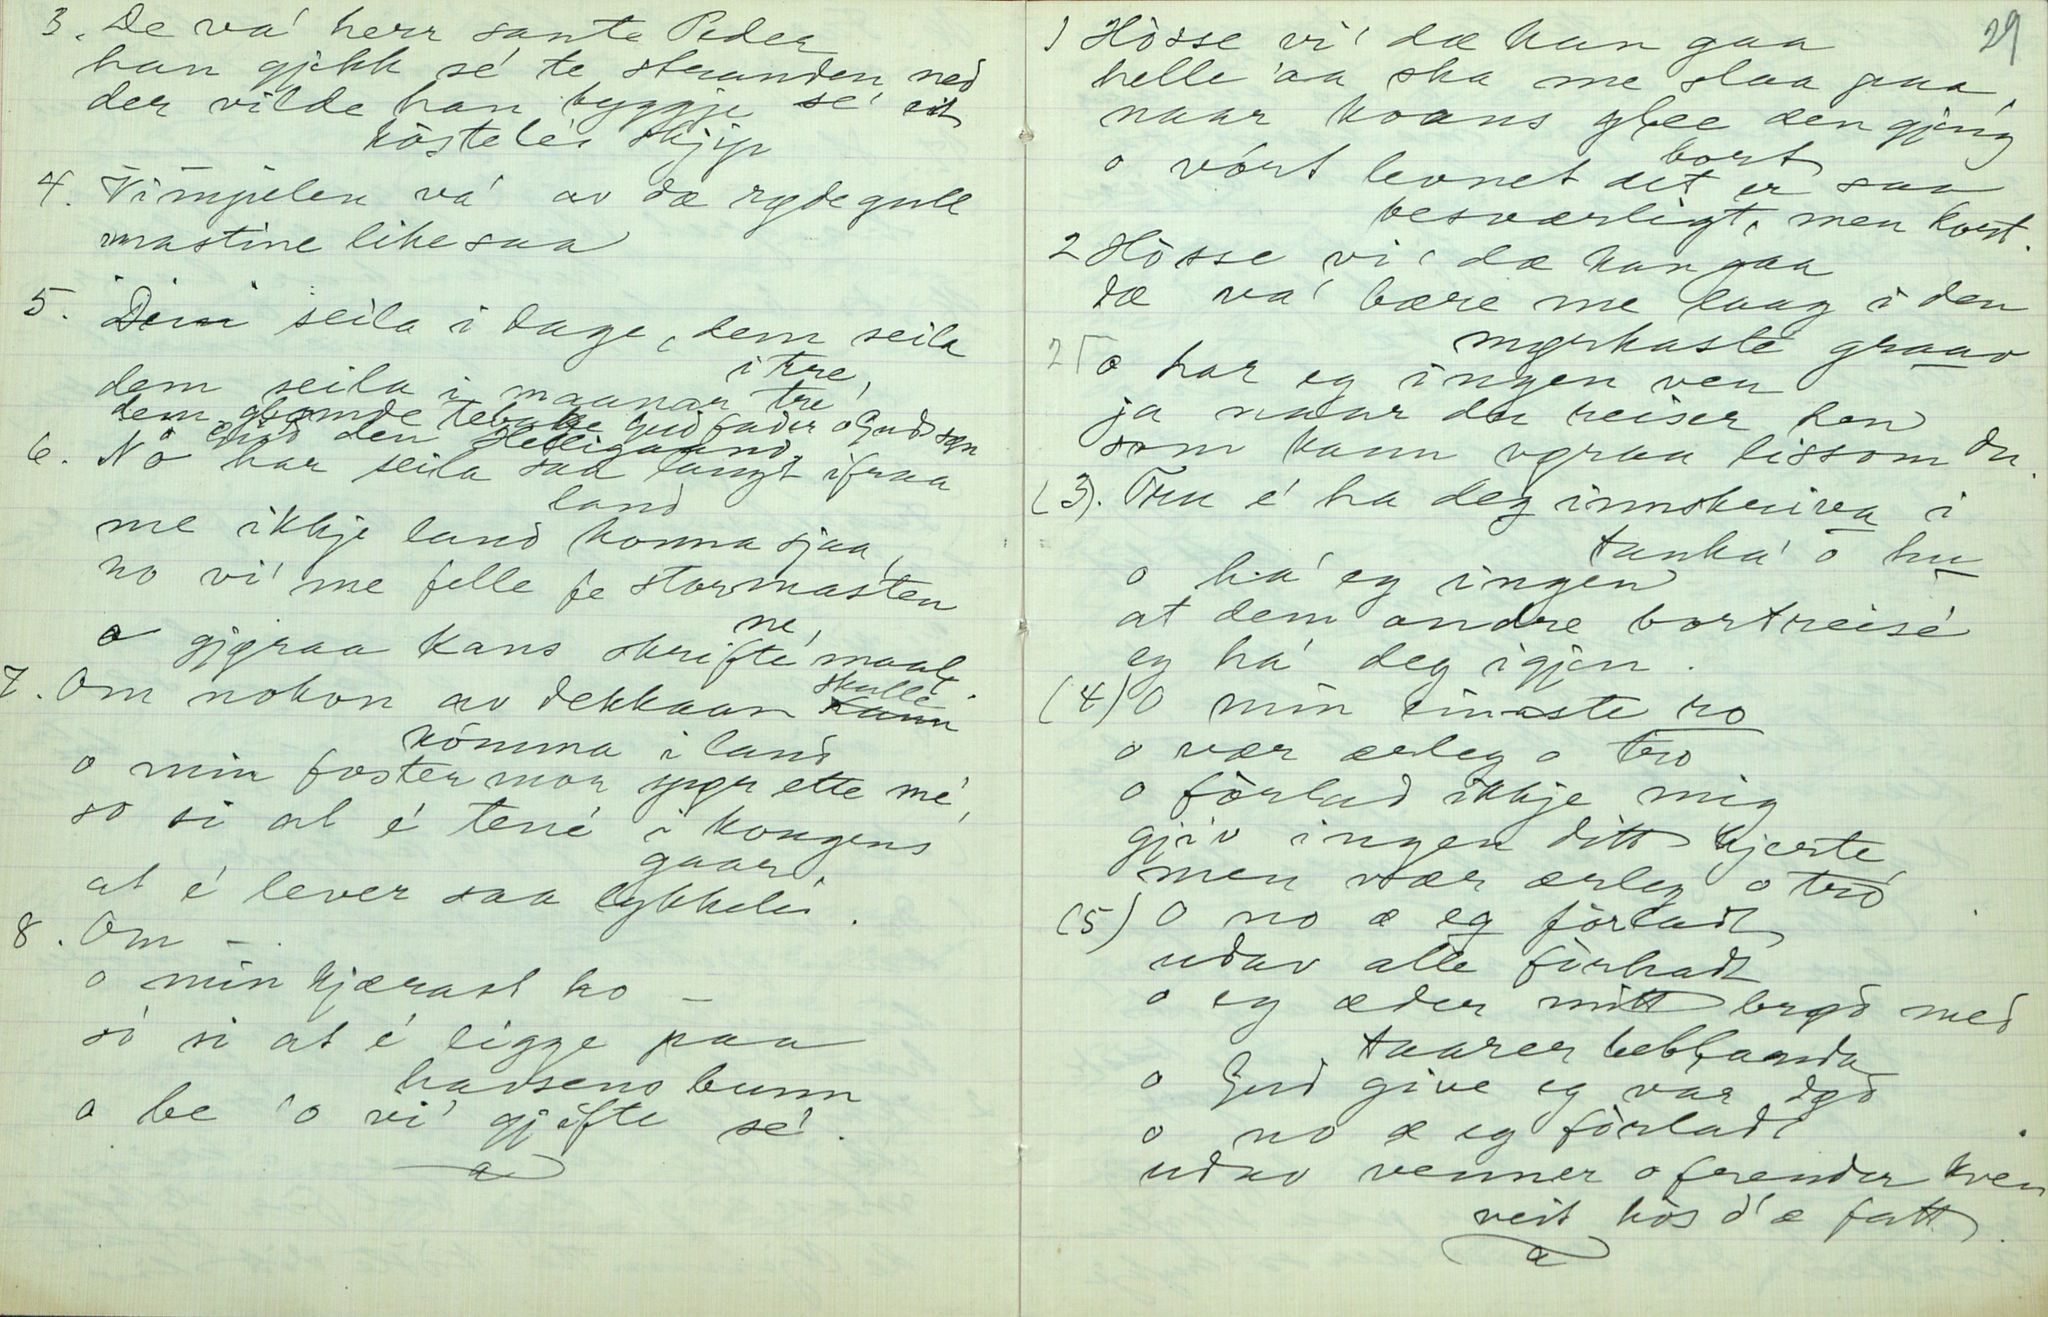 3. De va' herr sante Peder
han gjekk sé te stranden ned
der vilde han byggje sé eit
kostelei skjip
4. Vimpelen va' av dæ røde gull
mastine like saa
5. Deiri seila i dage, dem seila
i tre,
dem seila i maanar tre
dem glømde tebake Gud fader o Guds søn
Gud den Helligaand.
6. No har seila saa langt ifraa
land
me ikkje land konna sjaa,
no vi' me felle fe stormasten
ne,
o gjøraa kans skrifte maal.
7. Om nokon av dekkaan skulle
kómma i land
o min fostermor spør ette mé,
so si at é tené i kongens
gaar,
at é lever saa lykkelei.
8. Om –
o min kjærast ho –
só si at é ligge paa
havsens bunn
o be 'o vi' gjifte sé.
29
1 Hòsse vi' dæ kan gaa
helle 'aa ska me slaa paa,
naar koans glee æen gjeng
bort
o vórt levnet det er saa
besværligt, men kort.
2 Hòsse vi' dæ kan gaa
dæ va' bære me laag i den
mørkaste graav
2 o har eg ingen ven
ja naar du reiser hen
som kann vøraa lissom du.
(3). Tru é' ha deg innskriva i
tanka' o hu
o ha' eg ingen
at dem andre bortreisé
eg ha' deg igjen.
(4) O min einaste ro
o vær ærleg o tro
o fòrlad ikkje mig
gjiv ingen ditt hjerte
men vær ærleg o tro
(5) O no æ eg fòrladt
udav alle fòrhadt
o eg æder mitt brød med
taarer beblaanda
o Gud give eg var død
o no æ eg fòrladt
udav venner o frender kven
veit hòs d'æ fatt